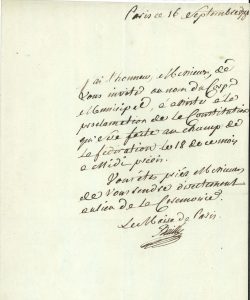 Paris ce 16 Septembre 1791
J'ai l'honneur, Monsieur, de
vous inviter au nom du Corps
Municipal à assister à la
proclamation de la Constitution
qui sera faite au champ de
la fédération le 18 de ce mois
à Midi précis.
Vous êtes prié Monsieur
de vous rendre directement
au lieu de la Cérémonie.
Le Maire de Paris